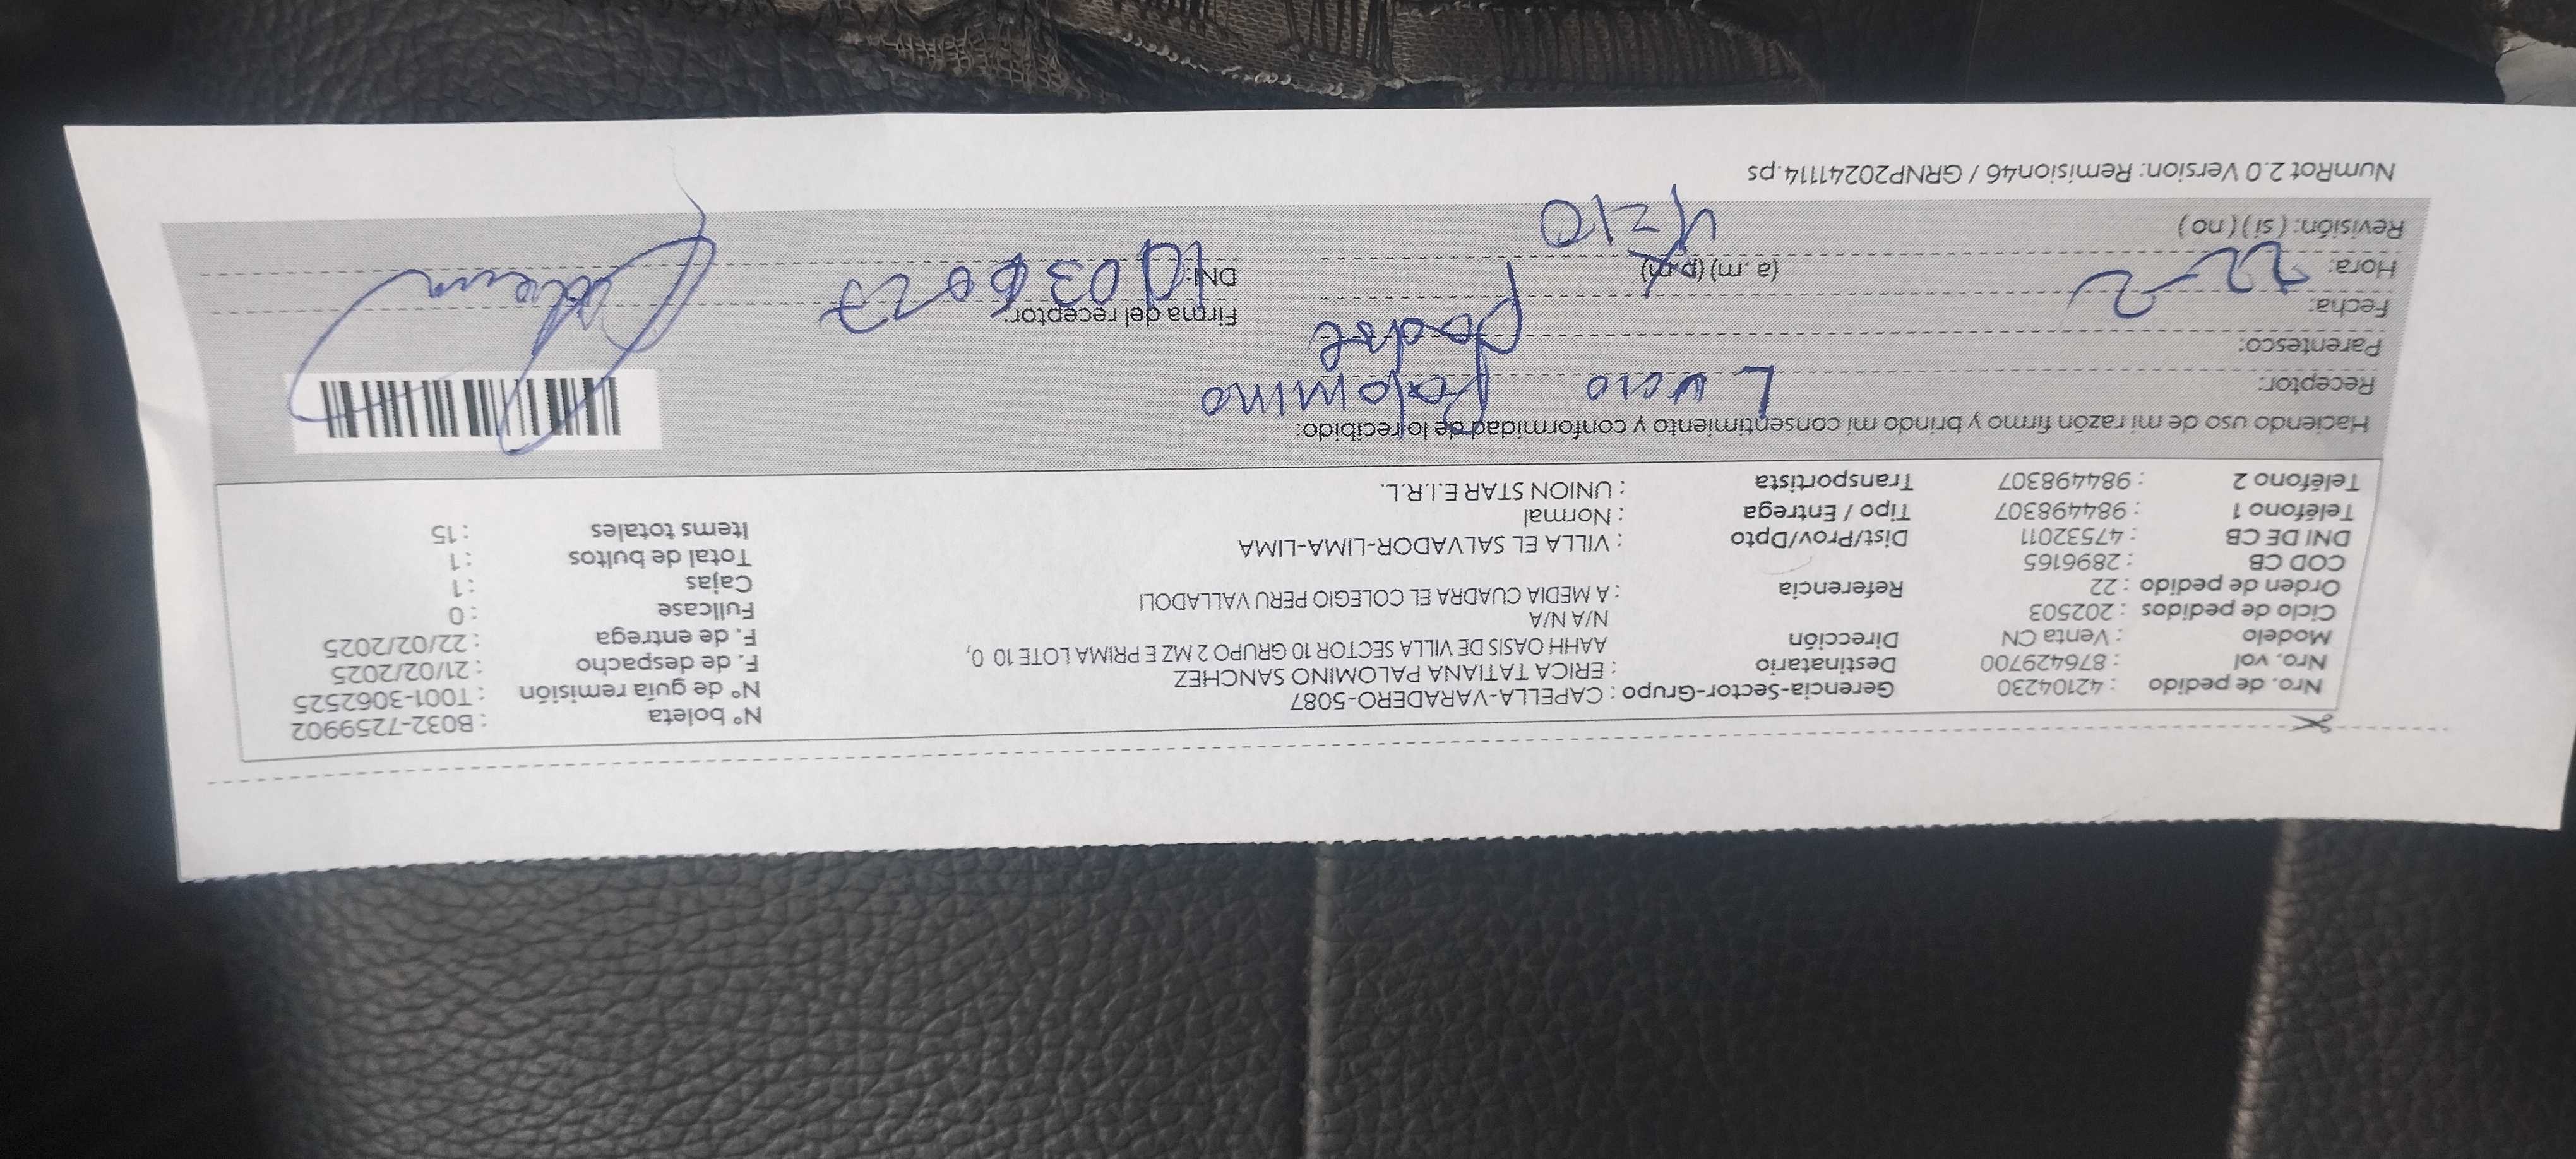 Nro. de pedido : 42104230 Gerencia-Sector-Grupo : CAPELLA-VARADERO-5087 N° boleta : B032-7259902
Nro. vol : 876429700 Destinatario : ERICA TATIANA PALOMINO SANCHEZ N° de guía remisión : T001-3062525
Modelo : Venta CN Dirección AAHH OASIS DE VILLA SECTOR 10 GRUPO 2 MZ E PRIMA LOTE 10 0, F. de despacho : 21/02/2025
Ciclo de pedidos : 202503 N/A N/A F. de entrega : 22/02/2025
Orden de pedido : 22 Referencia : A MEDIA CUADRA EL COLEGIO PERU VALLADOLI Fullcase : 0
COD CB : 2896165 Cajas : 1
DNI DE CB : 47532011 Dist/Prov/Dpto : VILLA EL SALVADOR-LIMA-LIMA Total de bultos : 1
Teléfono 1 : 984498307 Tipo / Entrega : Normal Items totales : 15
Teléfono 2 : 984498307 Transportista : UNION STAR E.I.R.L.
Haciendo uso de mi razón firmo y brindo mi consentimiento y conformidad de lo recibido:
Receptor: Lucio Palomino
Parentesco: padre
Fecha: 22-2 Firma del receptor:
Hora: (a.m) (p.m) 4=10 DNI: 10036027
Revisión: ( si ) ( no )
NumRot 2.0 Version: Remision46 / GRNP20241114.ps